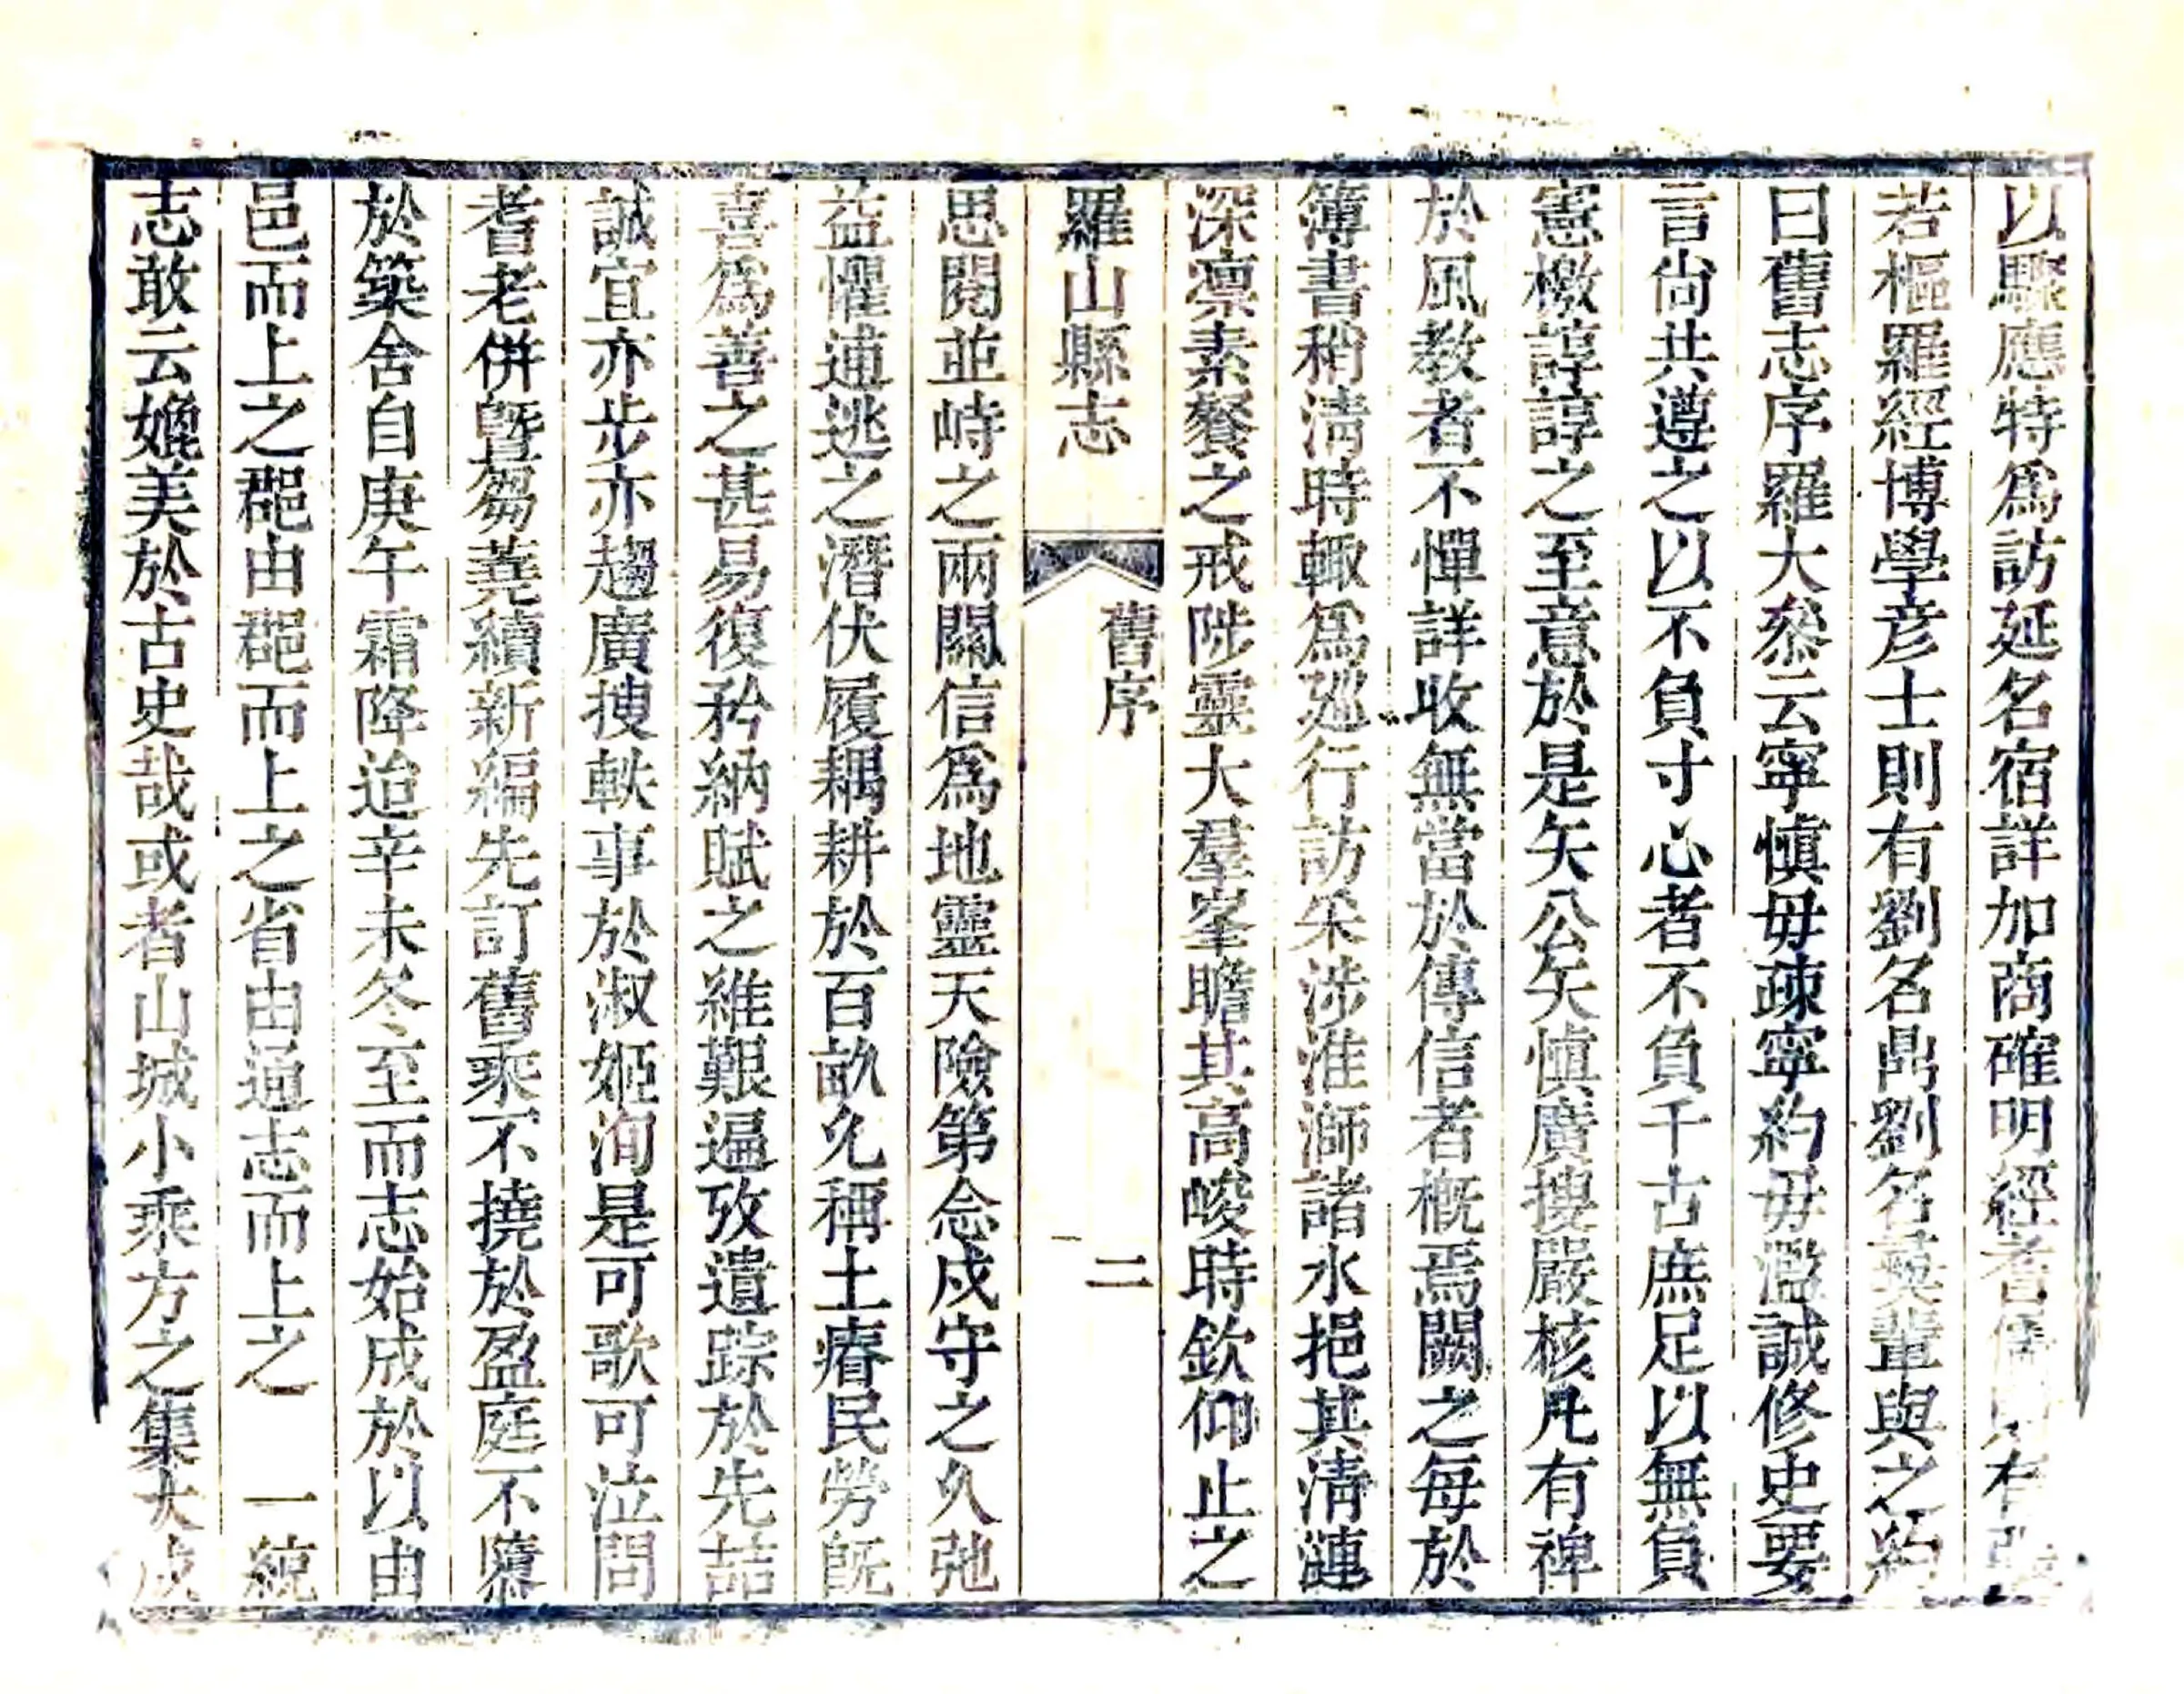 以驟應特爲訪延名宿詳加商確明經耆儒則有張
若樞羅經博學彥士則有劉名鼎劉名英輩與之約
曰舊志序羅大叅云寧愼毋疎寧約毋濫誠修史要
言尙共遵之以不負寸心者不負千古庶足以無負
憲檄諄諄之至意於是矢公矢愼廣搜嚴核凡有裨
於風教者不憚詳收無當於傳信者槪焉闕之每於
簿書稍淸時輙爲廵行訪采涉淮溮諸水挹其淸漣
深凛素餐之戒陟靈大羣峯瞻其高峻時欽仰止之
羅山縣志
舊序
二
思閱並峙之兩關信爲地靈天險第念戍守之久弛
益懼逋逃之潛伏履耦耕於百畝允稱土瘠民勞旣
喜爲善之甚易復矜納賦之維艱遍攷遺踪於先喆
誠宜亦步亦趨廣搜軼事於淑姬洵是可歌可泣問
耆老倂曁芻蕘續新編先訂舊乘不撓於盈庭不隳
於築舍自庚午霜降迨辛未冬至而志始成於以由
邑而上之郡由郡而上之省由通志而上之
一統
志敢云媲美於古史哉或者山城小乘方之集大成